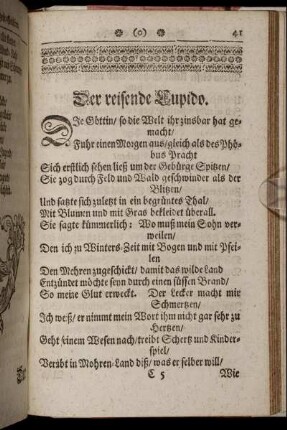 ❀ (o) ❀ 41
Der reisende Cupido.
DIe Göttin/ so die Welt ihr zinsbar hat ge-
macht/
Fuhr einen Morgen aus/ gleich als des Phö-
bus Pracht
Sich erstlich sehen ließ um der Gebürge Spitzen/
Sie zog durch Feld und Wald geschwinder als der
Blitzen/
Und satzte sich zuletzt in ein begrüntes Thal/
Mit Blumen und mit Gras bekleidet überall.
Sie sagte kümmerlich: Wo muß mein Sohn ver-
weilen/
Den ich zu Winters-Zeit mit Bogen und mit Pfei-
len
Den Mohren zugeschickt/ damit das wilde Land
Entzündet möchte seyn durch einen süssen Brand/
So meine Glut erweckt. Der Lecker macht mir
Schmertzen/
Ich weiß/ er nimmt mein Wort ihm nicht gar sehr zu
Hertzen/
Geht seinem Wesen nach/ treibt Schertz und Kinder-
spiel/
Verübt in Mohren-Land diß/ was er selber will/
C 5 Wie